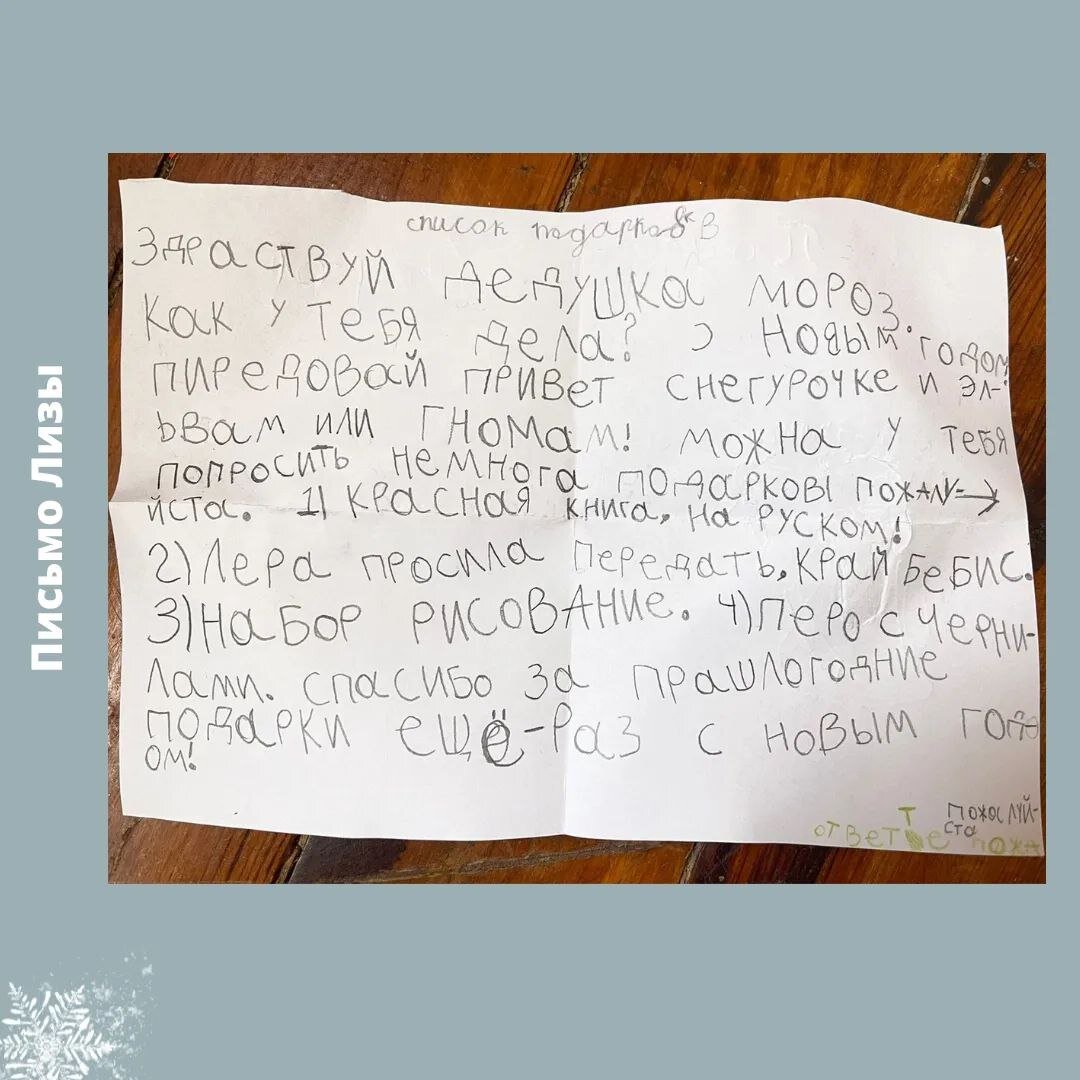 Письмо Лизы
список подарков
ЗДРАСТВУЙ ДЕДУШКА МОРОЗ.
КАК У ТЕБЯ ДЕЛА? С НОВЫМ ГОДОМ
ПИРЕДОВАЙ ПРИВЕТ СНЕГУРОЧКЕ И ЭЛ-
ЬВАМ ИЛИ ГНОМАМ! МОЖНА У ТЕБЯ
ПОПРОСИТЬ НЕМНОГА ПОДАРКОВ ПОЖАЛУ-
ЙСТА. 1) КРАСНАЯ КНИГА, НА РУСКОМ!
2) Лера ПРОСИЛА ПЕРЕДАТЬ, КРАЙ БЕБИС.
3) НАБОР РИСОВАНИЕ. 4) ПЕРО С ЧЕРНИ-
ЛАМИ. СПАСИБО ЗА ПРАШЛОГОДНИЕ
ПОДАРКИ ЕЩЁ-РАЗ С НОВЫМ ГОД
ОМ!
ПОЖАЛУЙ-
ОТВЕТТЕ СТА ПОЖА